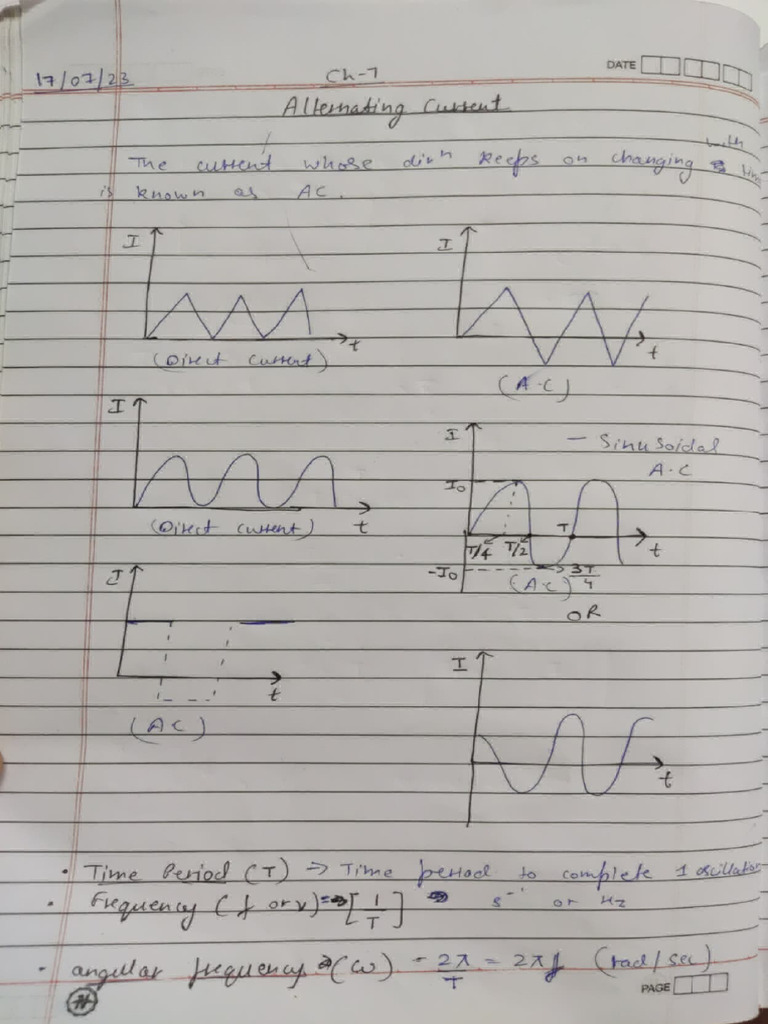 17/07/23
Ch-7
DATE
Alternating Current
The current whose dirⁿ keeps on changing with time
is known as AC.
I
t
(Direct Current)
I
t
(A.C)
I
t
(Direct Current)
I
- Sinusoidal
A.C
I₀
T/4
T/2
T
t
-I₀
3T/4
(AC)
OR
I
t
(AC)
I
t
• Time Period (T) → Time period to complete 1 oscillation
• Frequency (f or ν) ⇒ [1/T] → s⁻¹ or Hz
• angular frequency → (ω) = 2π/T = 2πf (rad/sec)
PAGE